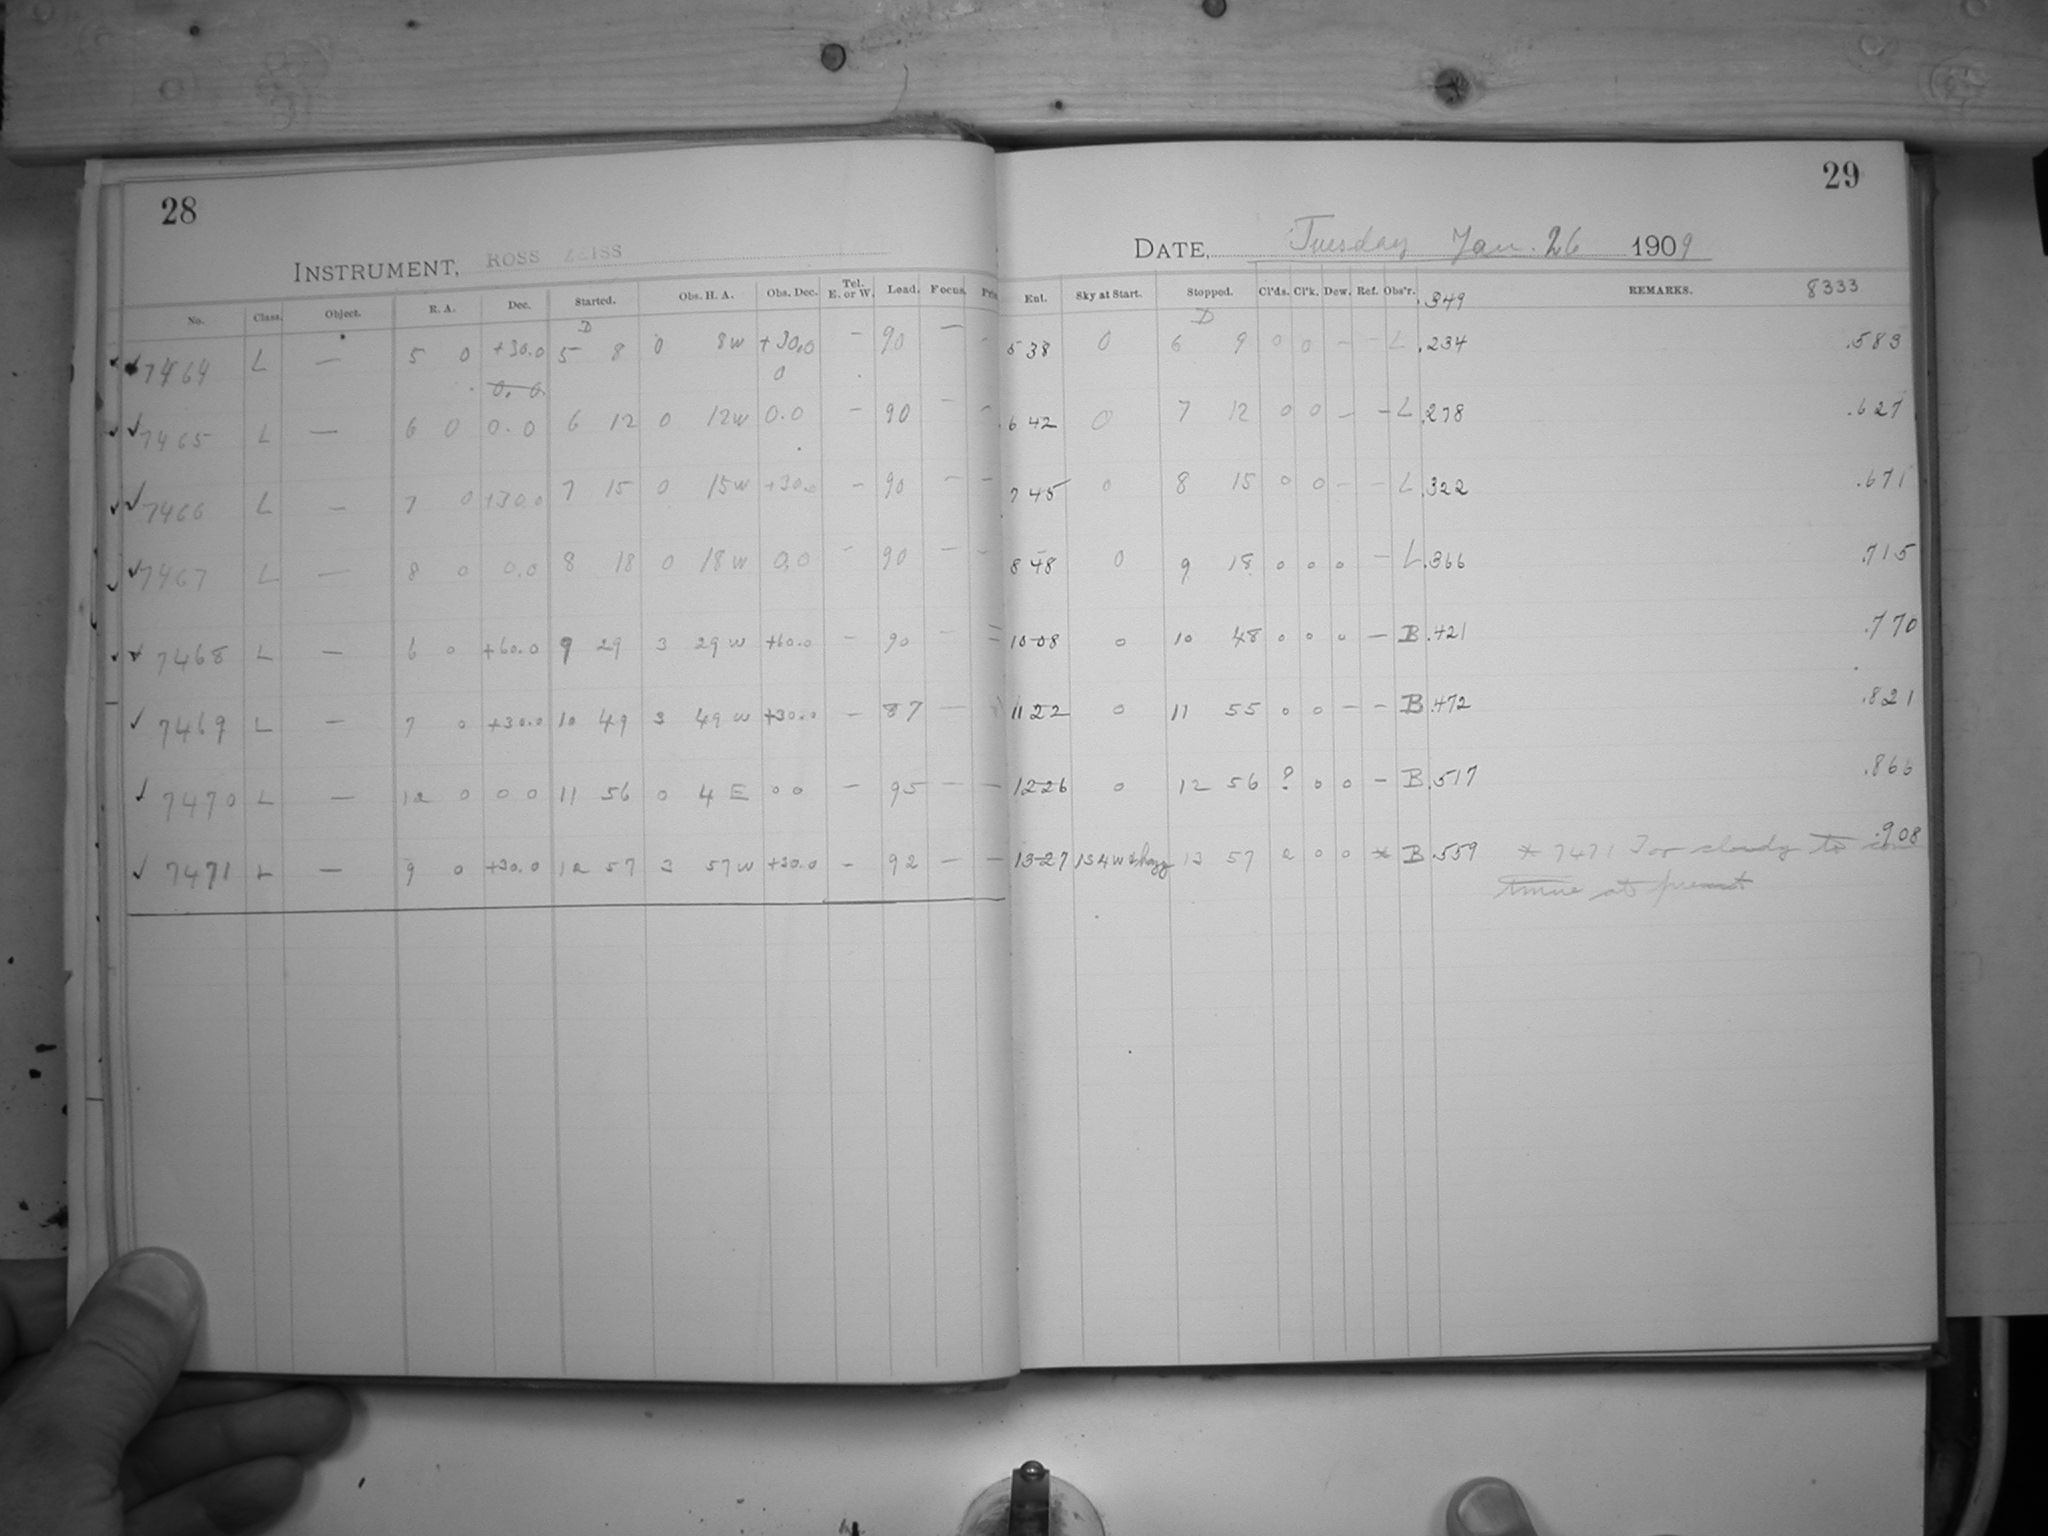 28
INSTRUMENT, ROSS ZEISS
No. Class. Object. R. A. Dec. Started. Obs. H. A. Obs. Dec. Tel. E. or W. Load. Focus.
D
7464 L — 5 0 +30.0 5 8 0 8w +30.0 — 90 —
0.0 0
7465 L — 6 0 0.0 6 12 0 12w 0.0 — 90 —
7466 L — 7 0 +30.0 7 15 0 15w +30.0 — 90 — —
7467 L — 8 0 0.0 8 18 0 18w 0.0 — 90 — —
7468 L — 6 0 +60.0 9 29 3 29w +60.0 — 90 —
7469 L — 7 0 +30.0 10 49 3 49w +30.0 — 87 —
7470 L — 12 0 0 0 11 56 0 4 E 0 0 — 95 — —
7471 L — 9 0 +30.0 12 57 3 57w +30.0 — 92 — —
29
DATE, Tuesday Jan. 26 1909
Ent. Sky at Start. Stopped. Cl'ds. Cl'k. Dew. Ref. Obs'r. .349 REMARKS. 8333
D
5 38 0 6 9 0 0 — — L .234 .583
6 42 0 7 12 0 0 — — L .278 .627
7 45 0 8 15 0 0 — — L .322 .671
8 48 0 9 18 0 0 0 — L .366 .715
10 08 0 10 48 0 0 0 — B .421 .770
11 22 0 11 55 0 0 — — B .472 .821
12 26 0 12 56 ? 0 0 — B .517 .866
13 27 13 57 2 0 0 * B .559 .908
* 7471 Too cloudy to con
tinue at present